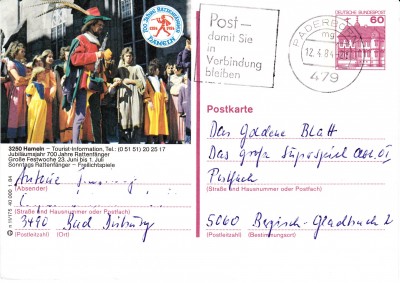 700 Jahre Rattenfänger
HAMELN
1284 1984
Post -
damit Sie
in
Verbindung
bleiben
PADERBORN
mg
12.4.84
479
DEUTSCHE BUNDESPOST
60
3250 Hameln – Tourist-Information, Tel.: (0 51 51) 20 25 17
Jubiläumsjahr 700 Jahre Rattenfänger
Große Festwoche 23. Juni bis 1. Juli
Sonntags Rattenfänger – Freilichtspiele
(Absender)
(Straße und Hausnummer oder Postfach)
3490 Bad Driburg
(Postleitzahl) (Ort)
Postkarte
Das Goldene Blatt
Das große Superspiel Abt. 01
Postfach
(Straße und Hausnummer oder Postfach)
5060 Bergisch-Gladbach 2
(Postleitzahl) (Bestimmungsort)